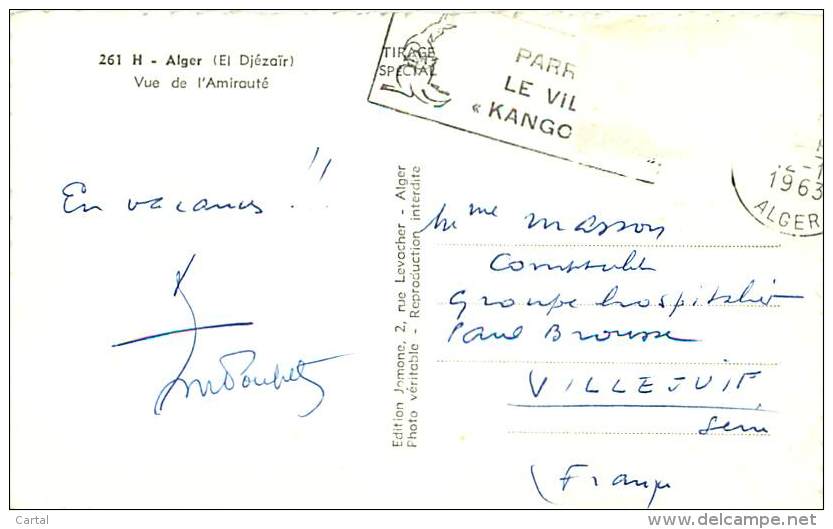 261 H - Alger (El Djézaïr)
Vue de l'Amirauté
TIRAGE
SPECIAL
PARR
LE VIL
« KANGO
1963
ALGER
En vacances !!
Edition Jomone, 2, rue Levacher - Alger
Photo véritable - Reproduction interdite
Mme Masson
Comptable
Groupe hospitalier
Paul Brousse
VILLEJUIF
Seine
(France
Cartal
www.delcampe.net